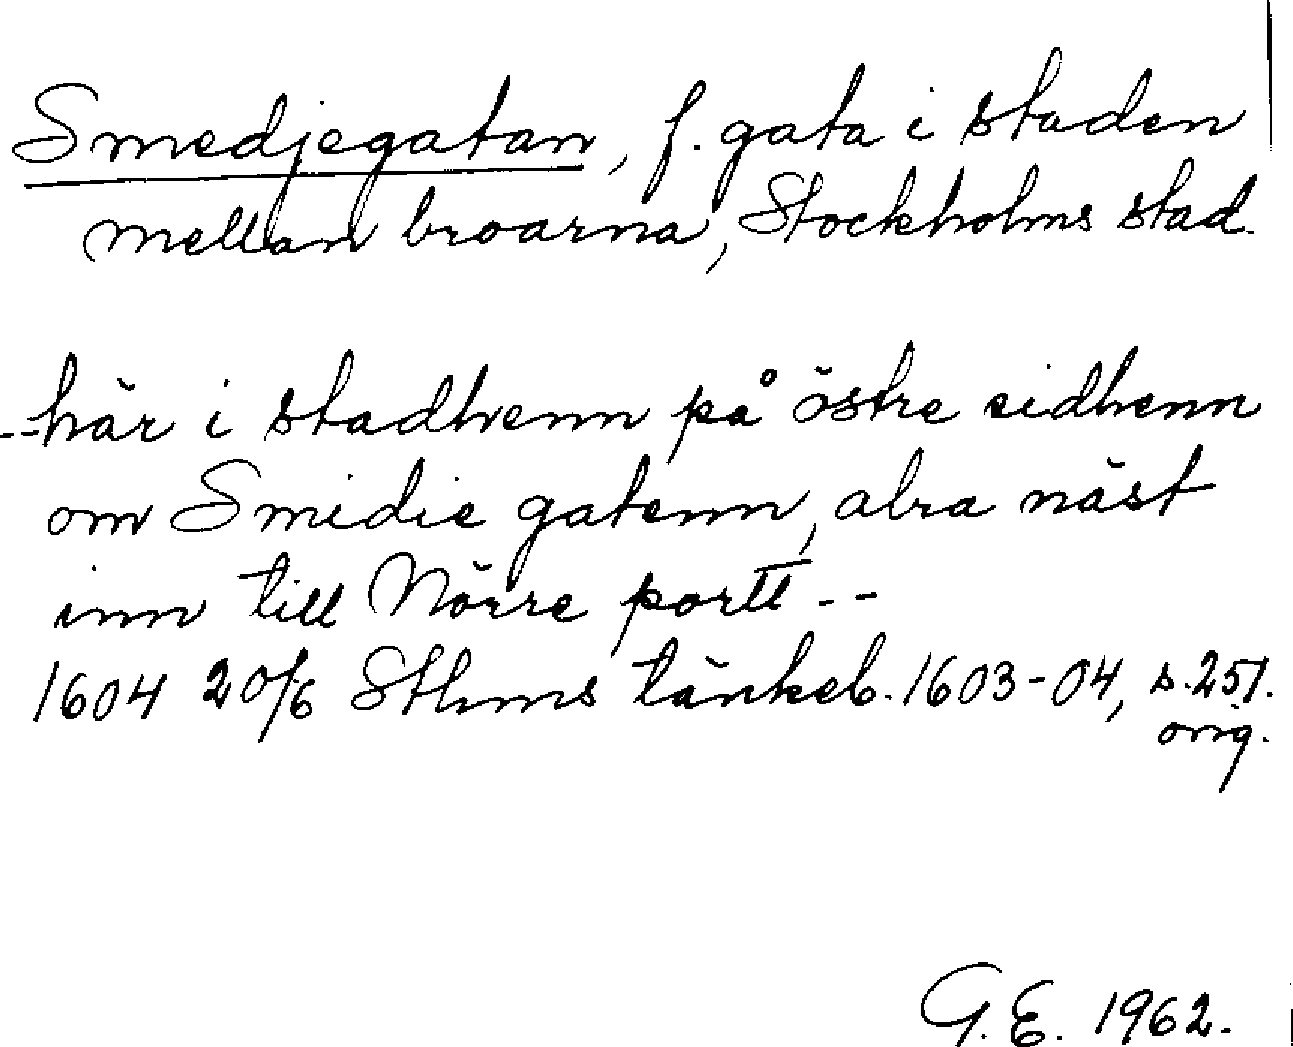 Smedjegatan, f. gata i staden
mellan broarna, Stockholms stad.
--här i stadhenn på östre sidhenn
om Smidie gatenn, alra näst
inn till Nörre portt --
1604 20/6 Sthms tänkeb. 1603-04, s. 251.
orig.
G.E. 1962.